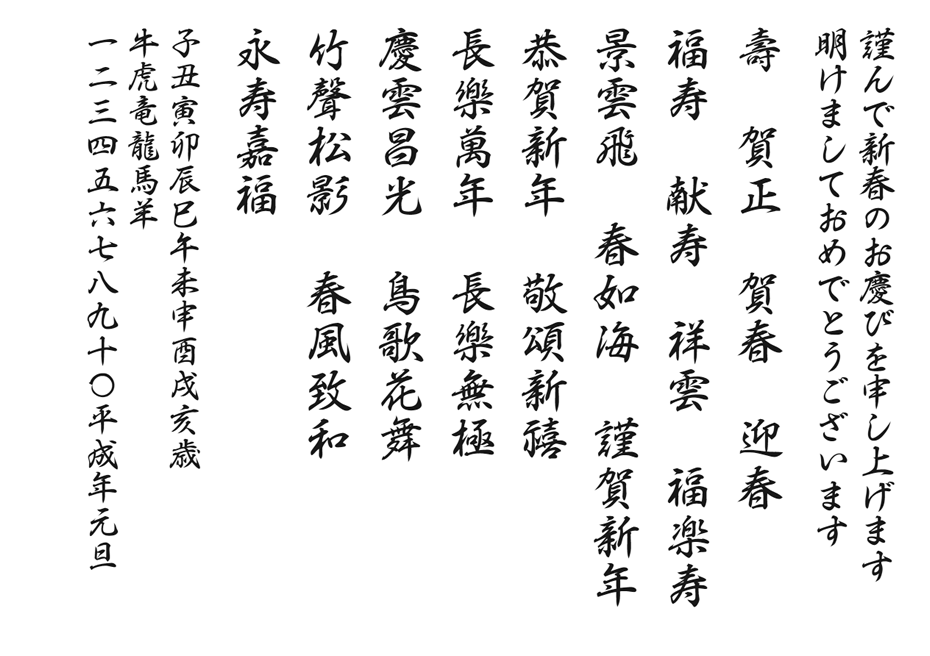 謹んで新春のお慶びを申し上げます
明けましておめでとうございます
壽　賀正　賀春　迎春
福寿　献寿　祥雲　福楽寿
景雲飛　春如海　謹賀新年
恭賀新年　敬頌新禧
長樂萬年　長樂無極
慶雲昌光　鳥歌花舞
竹聲松影　春風致和
永寿嘉福
子丑寅卯辰巳午未申酉戌亥歳
牛虎竜龍馬羊
一二三四五六七八九十〇平成年元旦